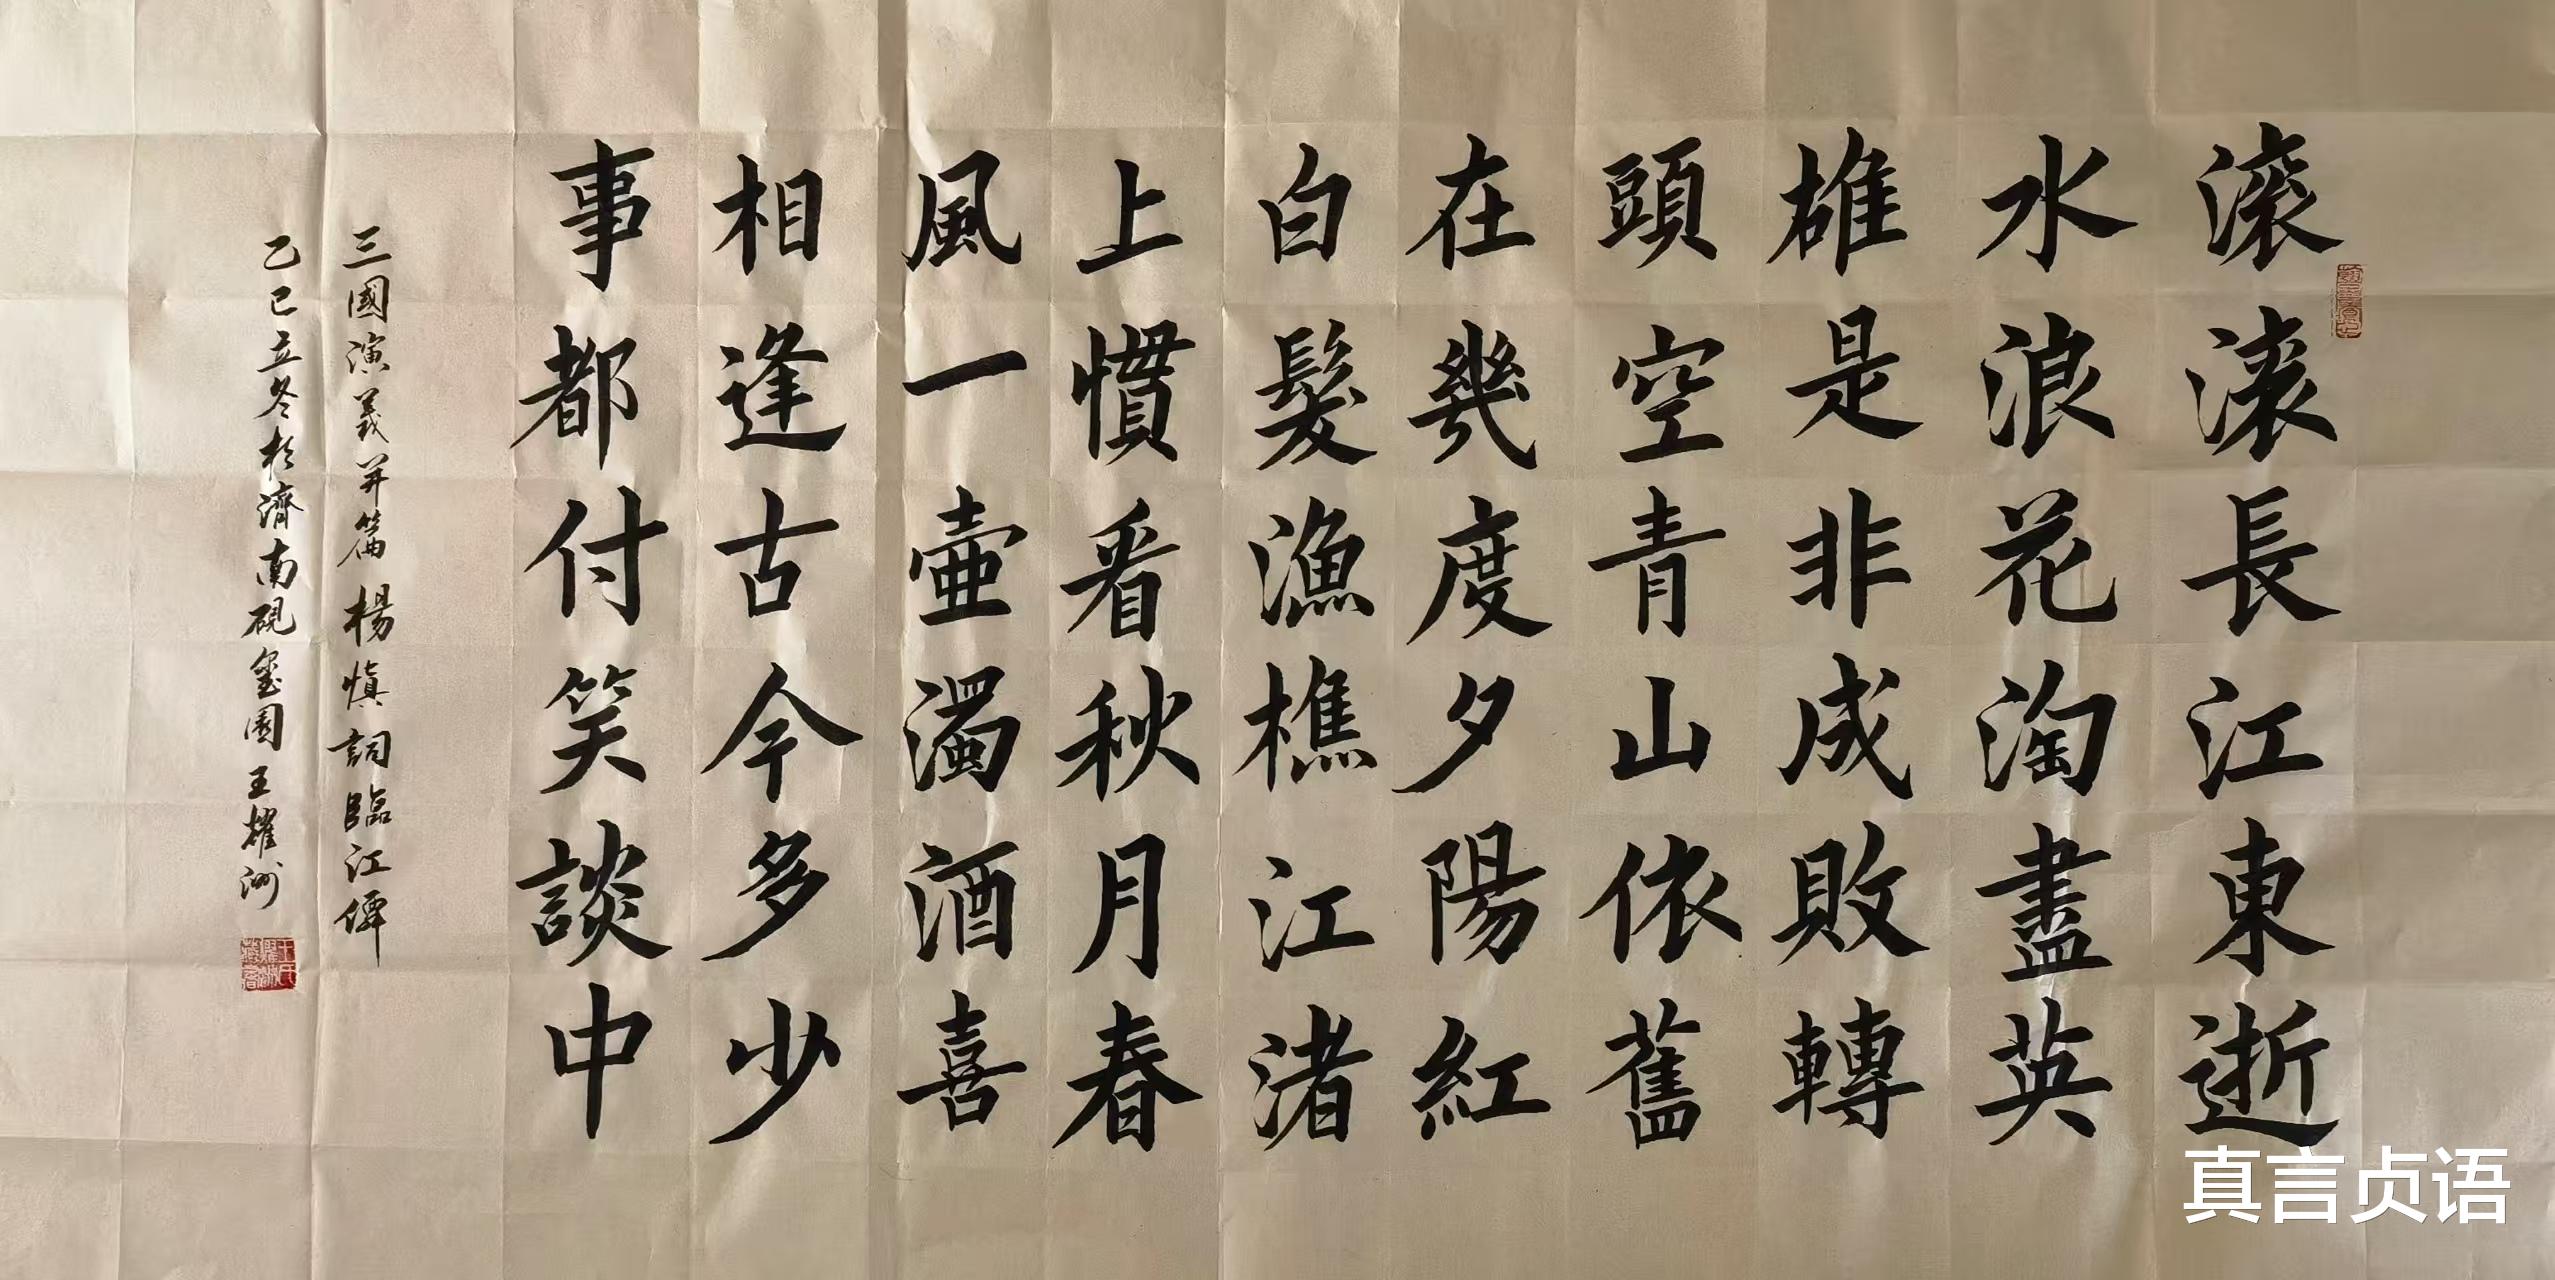 滚滚長江東逝
水浪花淘盡英
雄是非成敗轉
頭空青山依舊
在幾度夕陽紅
白髮漁樵江渚
上慣看秋月春
風一壺濁酒喜
相逢古今多少
事都付笑談中
三國演義開篇楊慎詞臨江仙
乙巳立冬於濟南硯璽園王耀洲
真言贞语